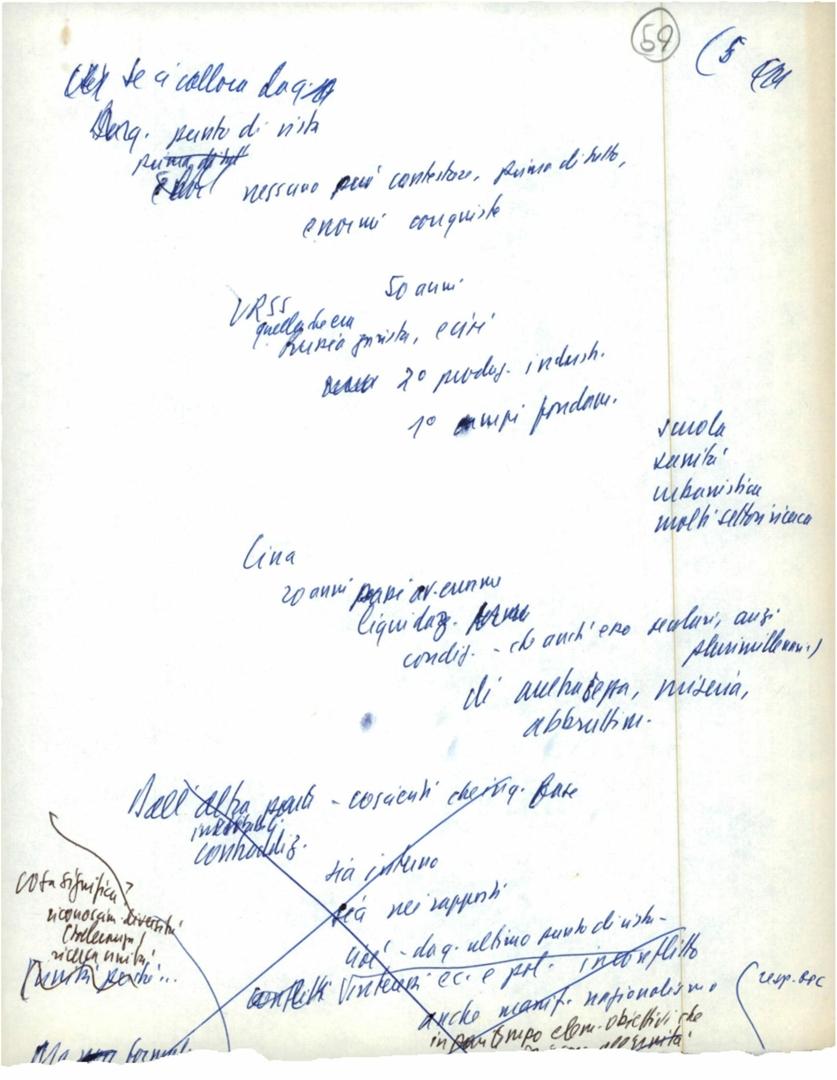 59
(5
Se ci colloca da q.
Da q. punto di vista
prima di tutt
nessuno può contestare, prima di tutto,
enormi conquiste
50 anni
URSS
quella che era
Russia zarista, e cioè
2° produz. industr.
1° campi fondam.
scuola
sanità
urbanistica
molti settori ricerca
Cina
20 anni
liquidaz.
condiz. - che anch'esse secolari, anzi
plurimillenar.)
di arretratezza, miseria,
abbrutim.
Dall'altra parte - coscienti che in q. fase
inevitabili
contraddiz.
sia interno
sia nei rapporti
cioè - da q. ultimo punto di vista -
conflitti interessi ec. e pol. in conflitto
anche manif. nazionalismo
in pari tempo elem. obiettivi che
cosa significa?
riconoscim. diversità
(tolleranza)
ricerca unità
(unità perché...
(resp.
Ma non formal.